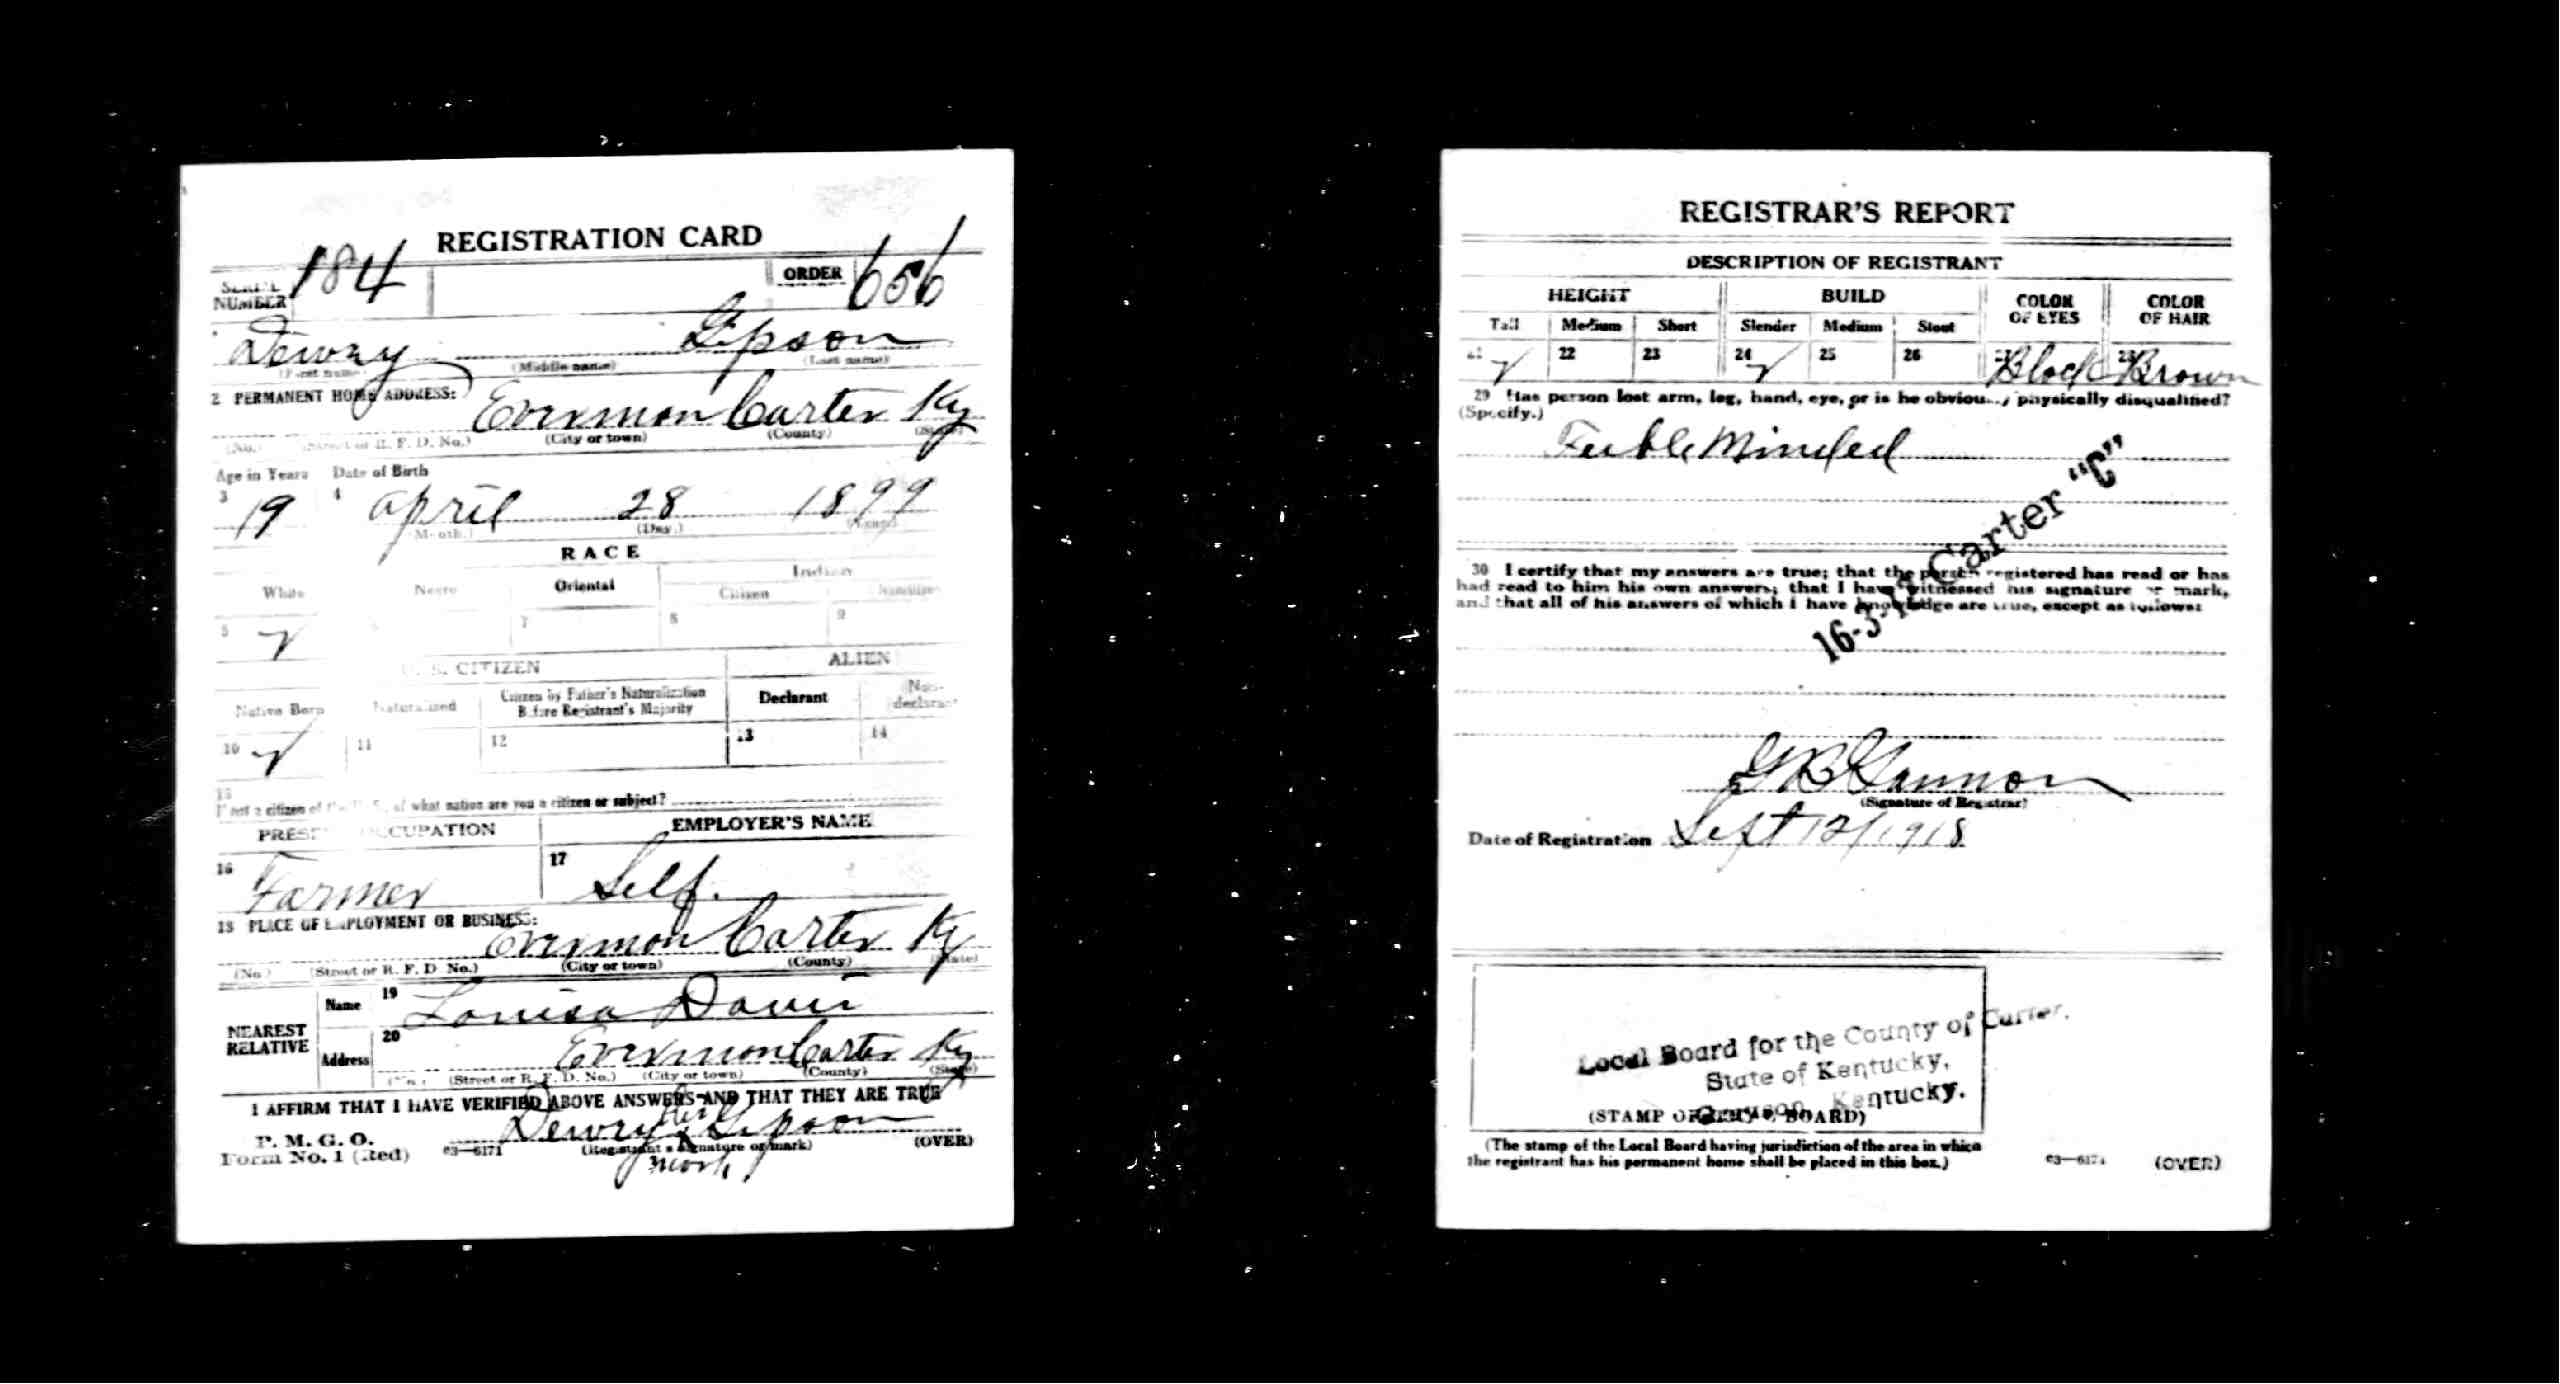 REGISTRATION CARD
SERIAL NUMBER 184 ORDER 656
Dewey Gipson
(First name) (Middle name) (Last name)
2 PERMANENT HOME ADDRESS:
Evermon Carter Ky
(No.) (Street or R. F. D. No.) (City or town) (County) (State)
Age in Years Date of Birth
3 19 4 April 28 1899
(Month.) (Day.) (Year.)
RACE
White Negro Oriental Indian
Citizen Noncitizen
5 ✓ 7 8 9
U. S. CITIZEN ALIEN
Native Born Naturalized Citizen by Father's Naturalization Before Registrant's Majority Declarant Non-declarant
10 ✓ 11 12 13 14
15
If not a citizen of the U. S., of what nation are you a citizen or subject?
PRESENT OCCUPATION EMPLOYER'S NAME
16 Farmer 17 Self.
18 PLACE OF EMPLOYMENT OR BUSINESS:
Evermon Carter Ky
(No.) (Street or R. F. D. No.) (City or town) (County) (State)
NEAREST RELATIVE
Name 19 Louisa Davis
Address 20 Evermon Carter Ky
(No.) (Street or R. F. D. No.) (City or town) (County) (State)
I AFFIRM THAT I HAVE VERIFIED ABOVE ANSWERS AND THAT THEY ARE TRUE
P. M. G. O.
Form No. 1 (Red) 03—6171 Dewey his x Gipson (OVER)
(Registrant's signature or mark)
mark
REGISTRAR'S REPORT
DESCRIPTION OF REGISTRANT
HEIGHT BUILD COLOR OF EYES COLOR OF HAIR
Tall Medium Short Slender Medium Stout
21 ✓ 22 23 24 ✓ 25 26 27 Black 28 Brown
29 Has person lost arm, leg, hand, eye, or is he obviously physically disqualified?
(Specify.)
Feeble Minded
16-3-12 Carter "C"
30 I certify that my answers are true; that the person registered has read or has
had read to him his own answers; that I have witnessed his signature or mark,
and that all of his answers of which I have knowledge are true, except as follows:
(Signature of Registrar)
Date of Registration Sept 12/1918
Local Board for the County of Carter,
State of Kentucky,
Grayson, Kentucky.
(STAMP OF LOCAL BOARD)
(The stamp of the Local Board having jurisdiction of the area in which
the registrant has his permanent home shall be placed in this box.)
03—6171 (OVER)